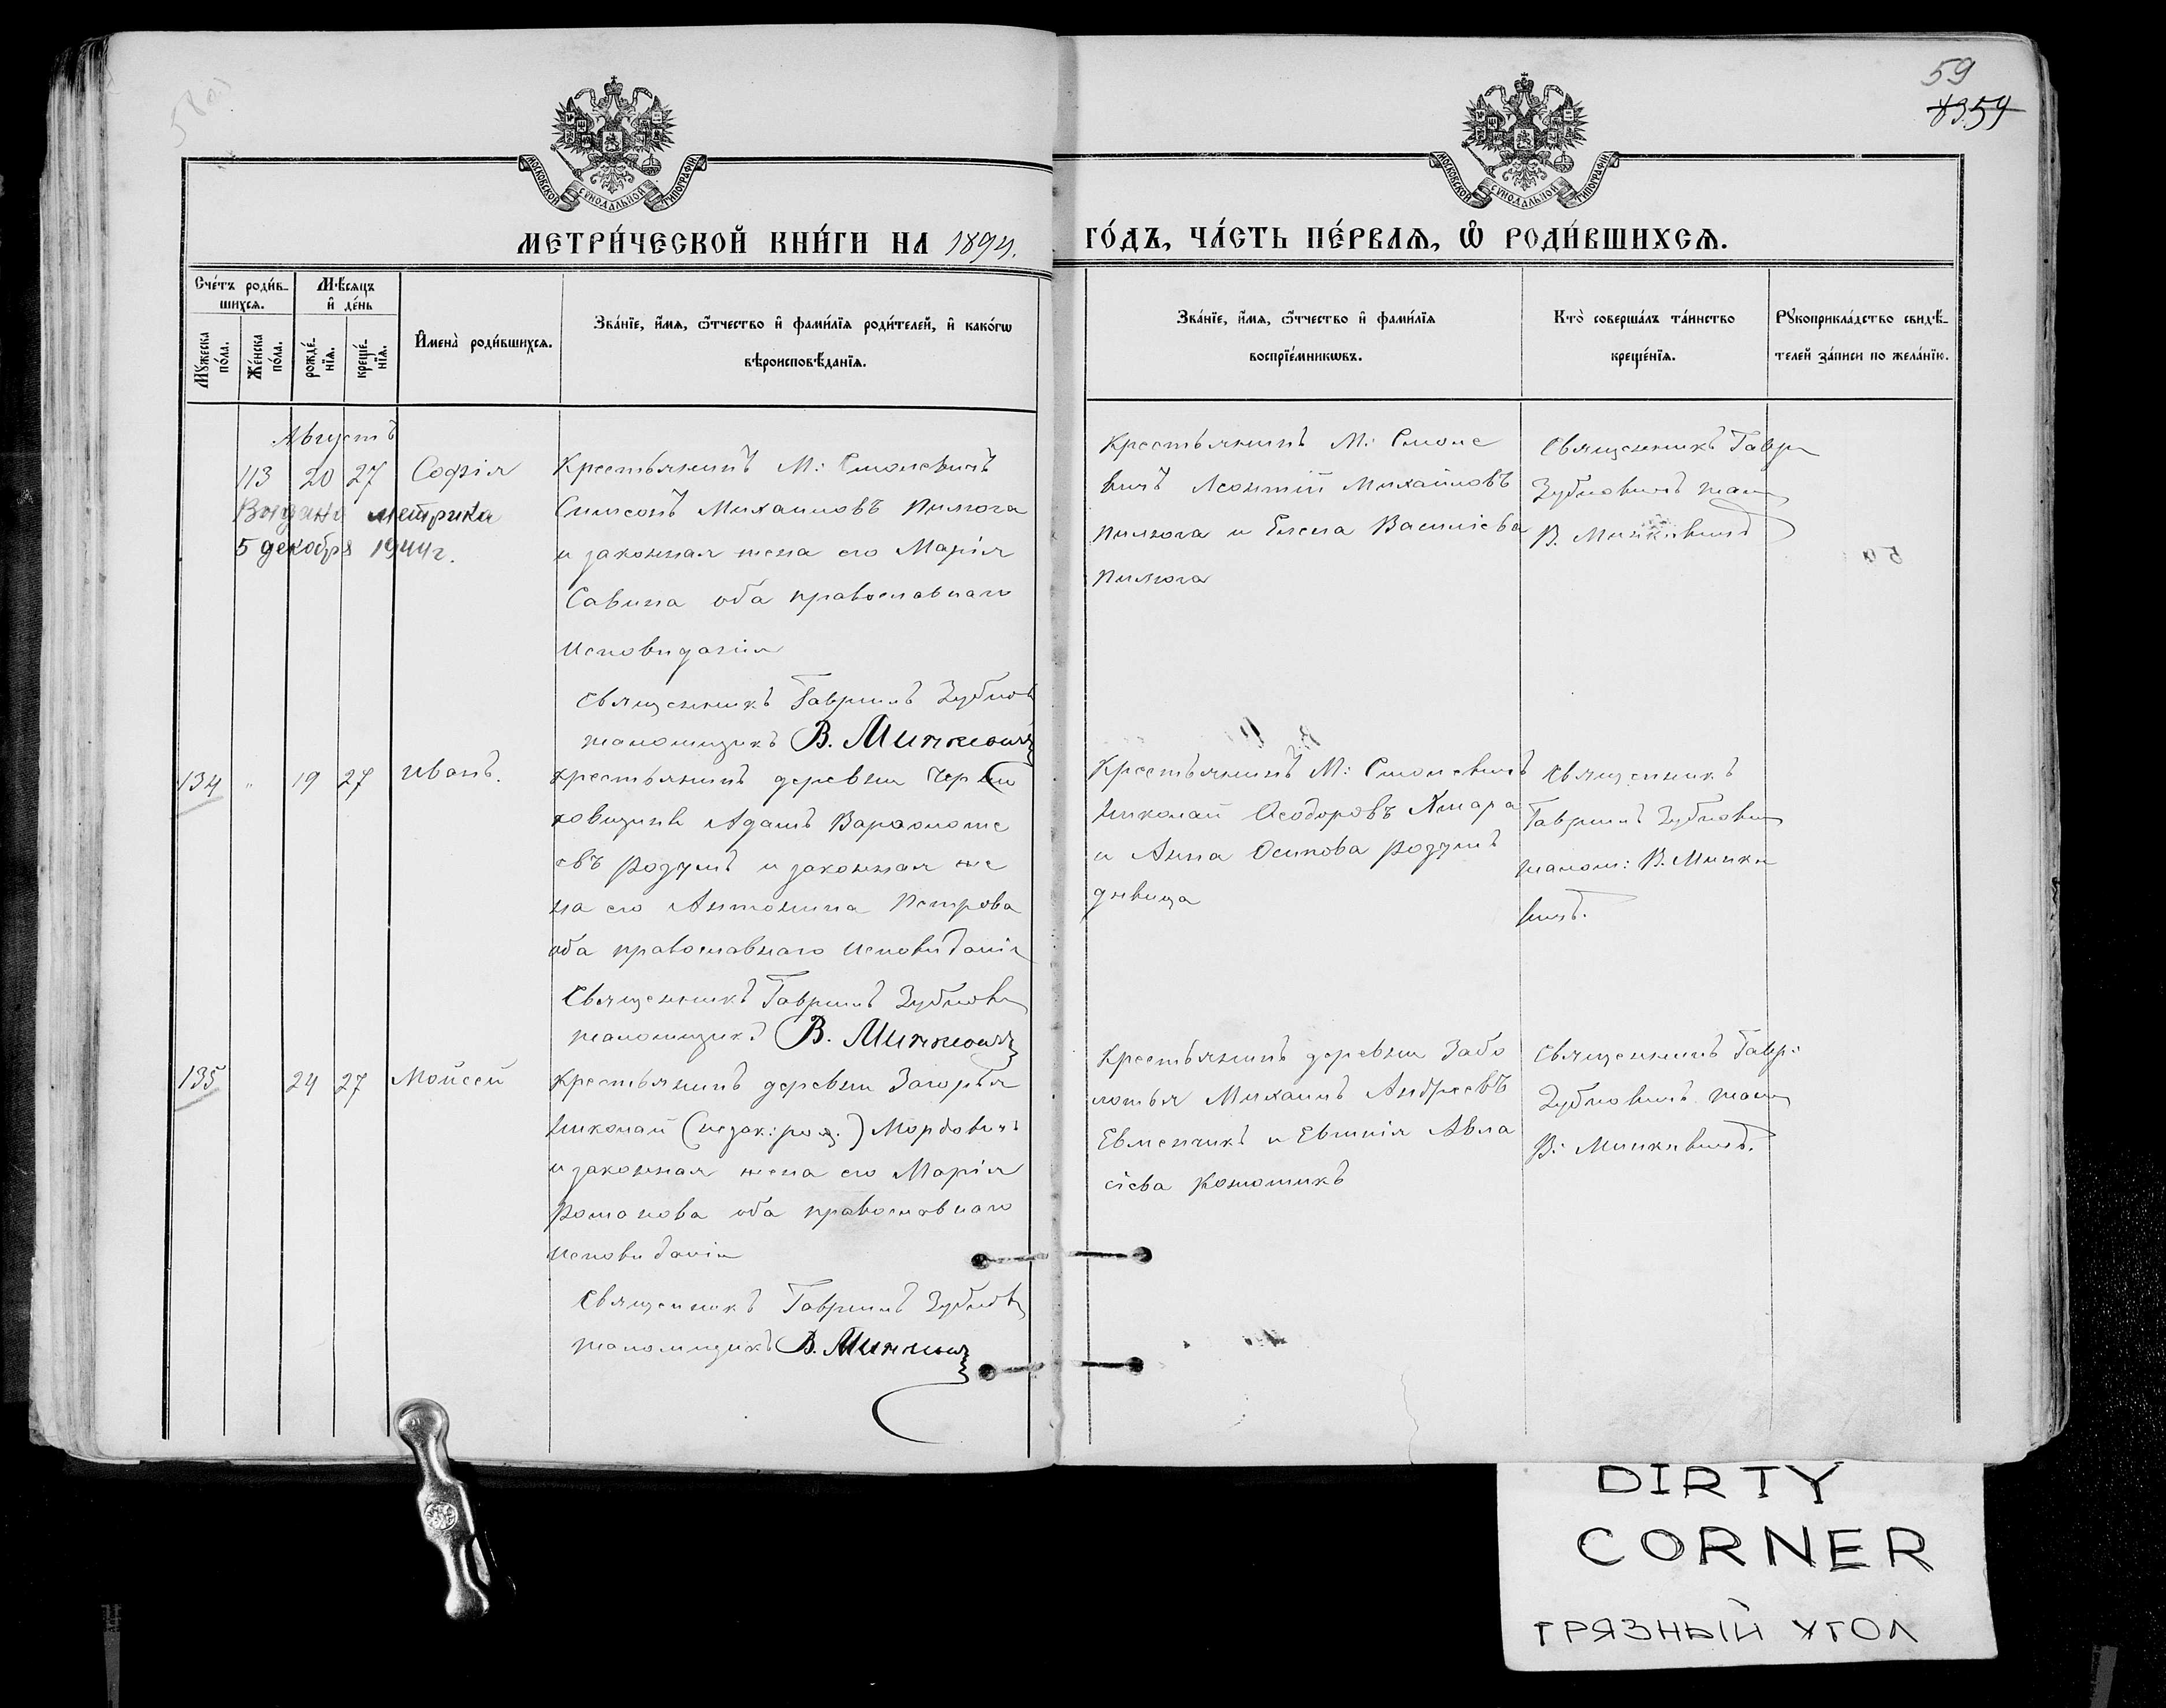 59
МОСКОВСКОЙ СѴНОДАЛЬНОЙ ТИПОГРАФІИ
МОСКОВСКОЙ СѴНОДАЛЬНОЙ ТИПОГРАФІИ
МЕТРИ́ЧЕСКОЙ КНИ́ГИ НА 1894.
ГО́ДЪ, ЧА́СТЬ ПЕ́РВАЯ, Ѽ РОДИ́ВШИХСЯ.
Сче́тъ роди́в-
шихся.
Мꙋжеска по́ла.
Же́нска по́ла.
Мѣсяцъ
и҆ де́нь
рожде́-
нїя.
креще́-
нїя.
И҆мена̀ роди́вшихся.
Зва́нїе, и҆́мя, ѻ҆́тчество и҆ фами́лїя роди́телей, и҆ како́гѡ
вѣроисповѣ́данїя.
Зва́нїе, и҆́мя, ѻ҆́тчество и҆ фами́лїя
воспрїе́мникѡвъ.
Кто̀ соверша́лъ та́инство
креще́нїя.
Рꙋкоприкла́дство свидѣ́-
телей за́писи по жела́нїю.
Августъ
113 20 27 Софія
Выдана метрика
5 декабря 1944г.
Крестьянинъ М: Смолевичъ
Симеонъ Михаиловъ Пилюга
и законная жена его Марія
Савина оба православнаго
исповиданія
Священникъ Гавріилъ Зубков
псаломщикъ В. Минкевичъ
Крестьянинъ М: Смоле
вичъ Леонтій Михайловъ
Пилюга и Елена Василіева
Пилюга
Священникъ Гаври
В. Минкевичъ
134 " 19 27 Иванъ.
Крестьянинъ деревни
Адамъ Варфоломе
евъ Розумъ и законная же
на его Антонина Петрова
оба православнаго исповиданія
Священникъ Гавріилъ
псаломщикъ В. Минкевичъ
Крестьянинъ М: Смолевичъ
Николай Ѳеодоровъ Хмара
и Анна Осипова Розумъ
дѣвица
Священникъ
Гавріилъ
псалом: В. Минке
вичъ.
135 24 27 Мойсей
Крестьянинъ деревни Загорья
Николай (незак: рож.) Мордовичъ
и законная жена его Марія
Романова оба православнаго
исповиданія
Священникъ Гавріилъ
псаломщикъ В. Минкевичъ
Крестьянинъ деревни Забо
лотья Михаилъ Андреевъ
Евменчикъ и Евгинія Авла
сіева
Священникъ Гавр:
В. Минкевичъ.
DIRTY
CORNER
ГРЯЗНЫЙ УГОЛ